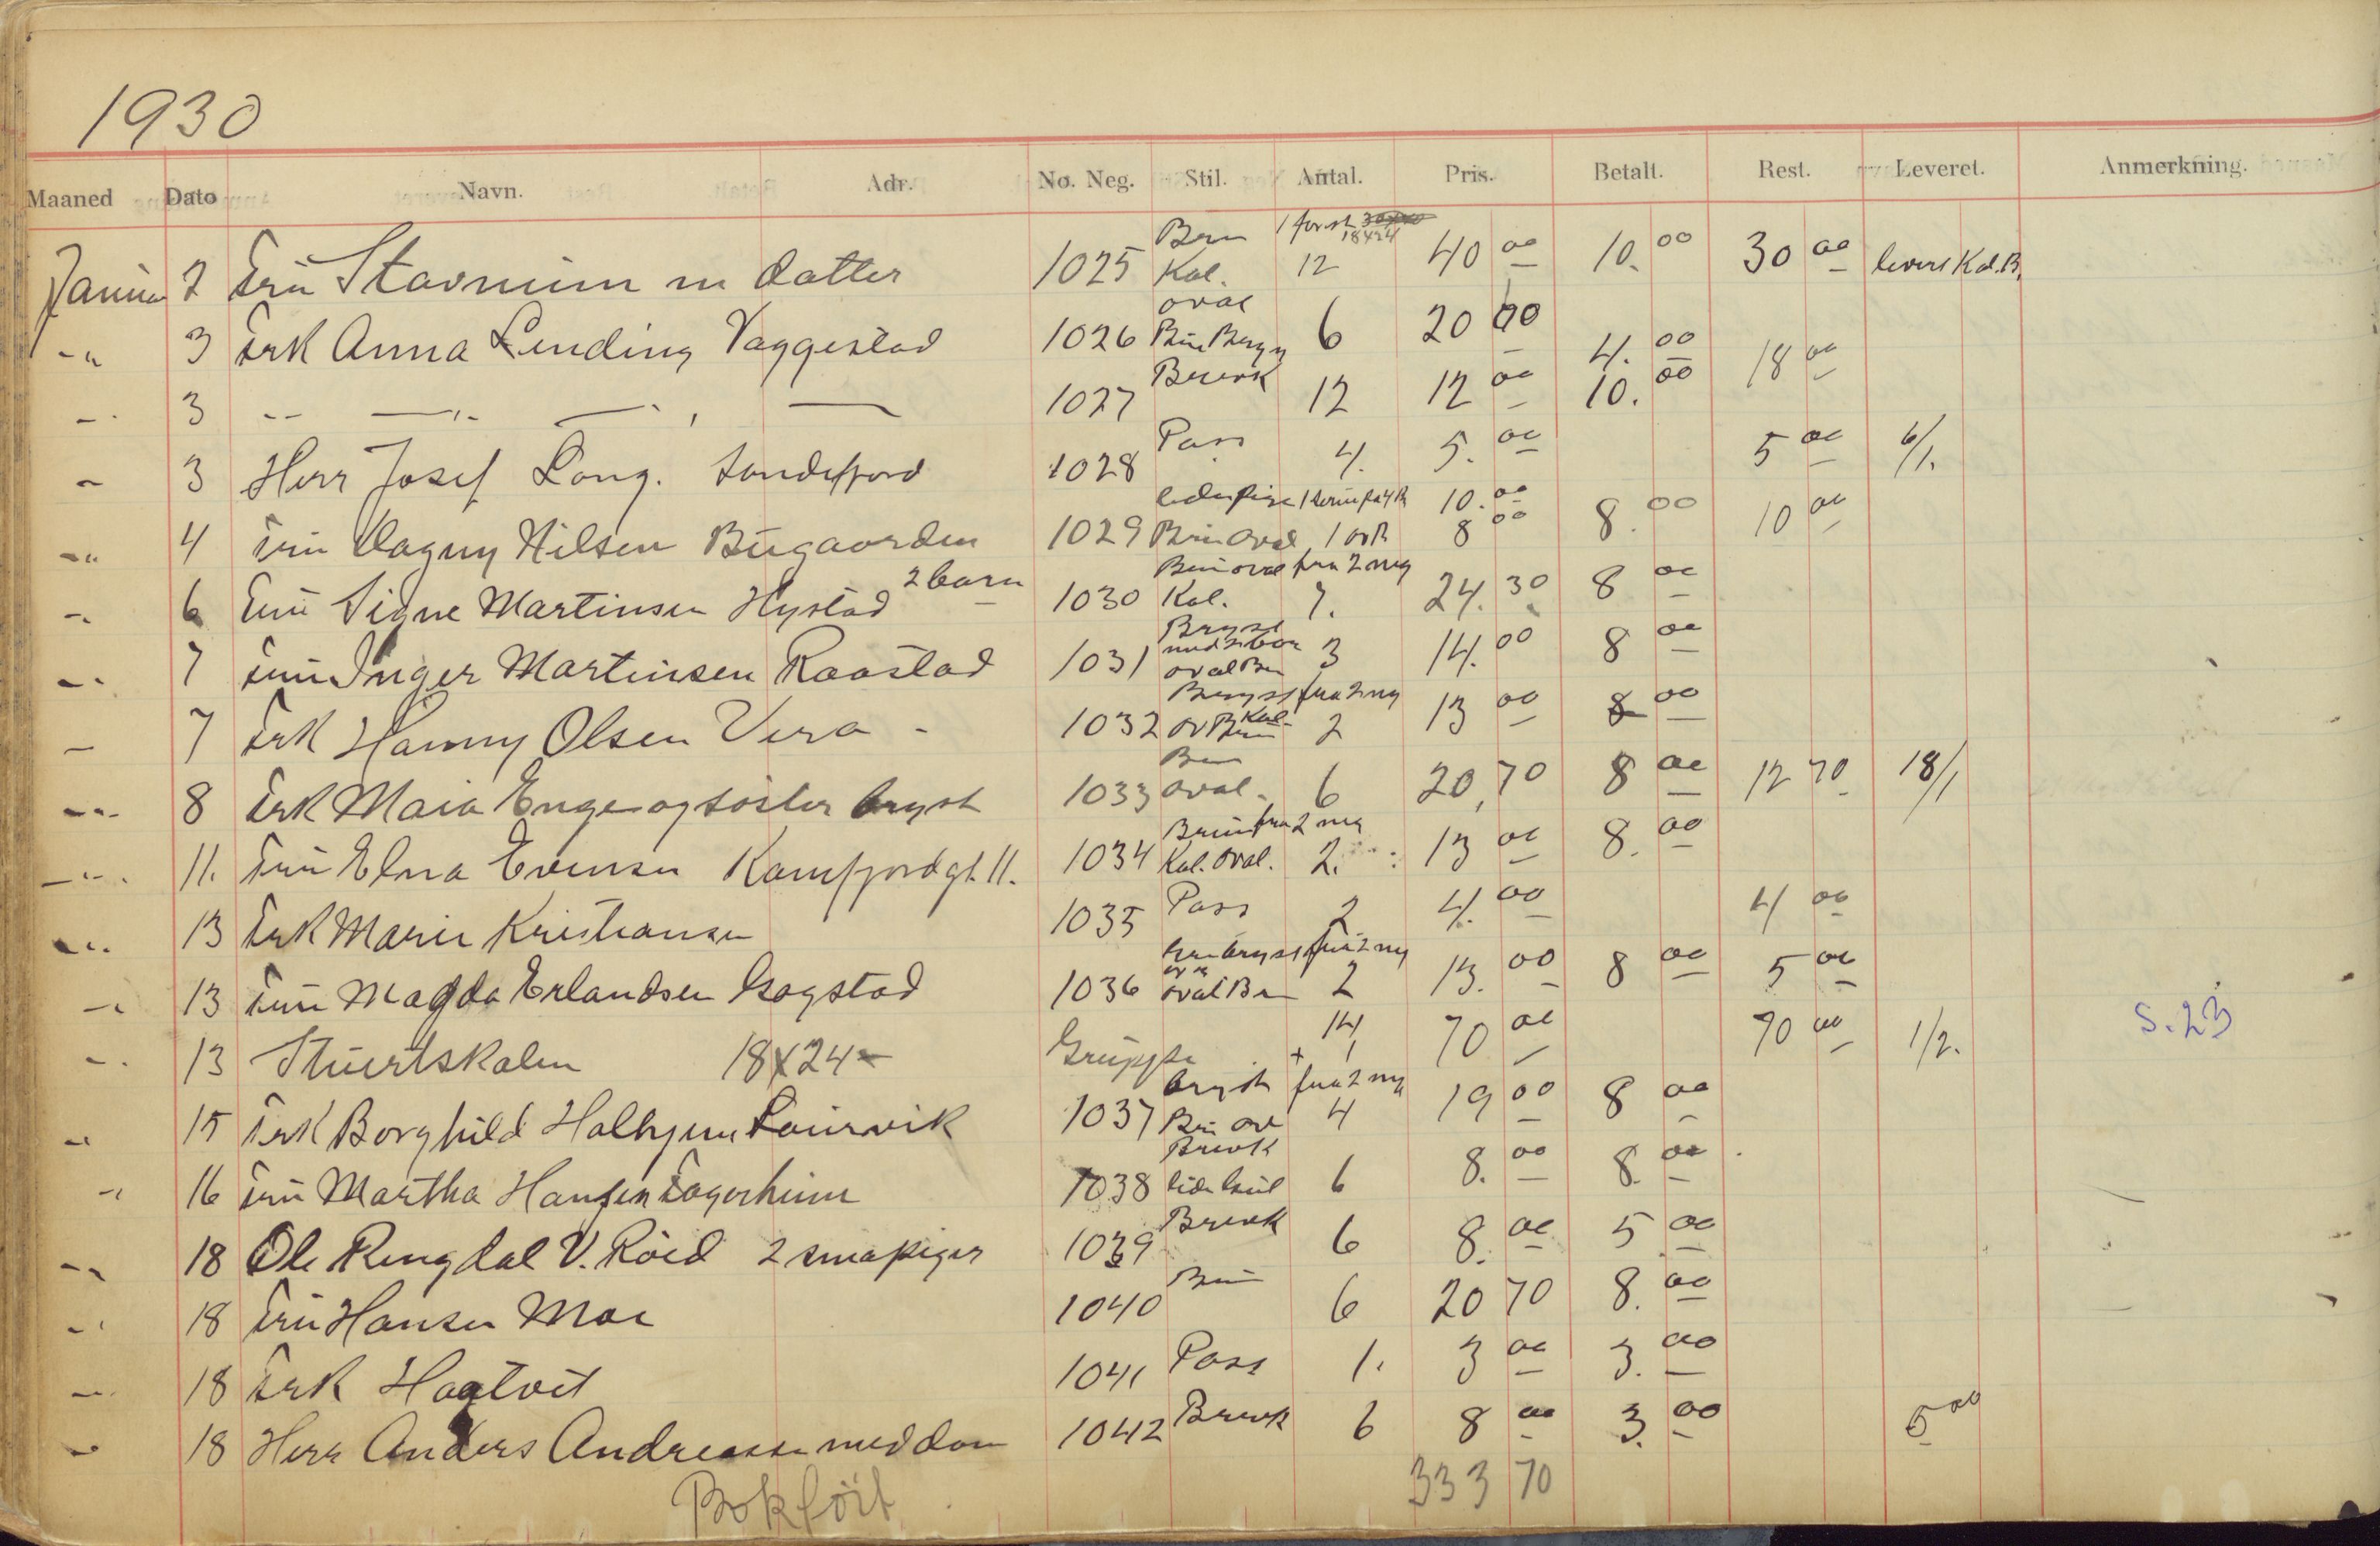 1930
Maaned Dato Navn. Adr. No. Neg. Stil. Antal. Pris. Betalt. Rest. Leveret. Anmerkning.
Brun 1 forst 18x24
2 Fru Stavnum m datter 1025 Kol. 12 40 00 10. 00 30 00 levert Kol. B.
oval
3 Frk Anna Linding Vaggestad 1026 6 20 00 4. 00 18 00
Brevk
3 1027 12 12 00 10. 00
Pass
3 Herr Josef Long. Sandefjord 1028 4. 5. 00 5 00 6/1.
10. 00
4 Fru Dagny Nilsen Bugaarden 1029 Brun oval 8 00 8. 00 10 00
Brun oval fra 2 neg
6 Fru Signe Martinsen Hystad 2 barn 1030 Kol. 7. 24. 30 8 00
Bryst
7 Fru Inger Martinsen Raastad 1031 oval Brun 3 14. 00 8 00
Bryst fra 2 neg
7 Frk Hanny Olsen Vera - 1032 Kol. 2 13 00 8 00
Brun
8 Frk Maia Enge og söster bryst 1033 oval. 6 20,70 8 00 12 70 18/1
Brun fra 2 neg
11. Fru Elna Evensen Kamfjordgt. 11. 1034 Kol. oval. 2. 13 00 8. 00
Pass
13 Frk Marie Kristiansen 1035 2 4. 00 4 00
bryst fra 2 neg
13 Fru Magda Erlandsen Gogstad 1036 oval Brun 2 13. 00 8 00 5 00
13 Stuertskolen 18x24 Gruppe 14 + 1 70 00 70 00 1/2. S. 23
bryst fra 2 neg
15 Frk Borghild Laurvik 1037 Brun ov 4 19 00 8 00
Brevk
16 Fru Martha Hansen Fagerheim 1038 6 8. 00 8. 00
Brevk
18 Ole Ringdal V. Röid 2 smapiger 1039 6 8. 00 5 00
Brun
18 Fru Hansen Moe 1040 6 20 70 8. 00
18 Frk Haatvet 1041 Pass 1. 3 00 3. 00
18 Herr Anders Andreassen med dame 1042 Brevk 6 8 00 3. 00 5 00
Bokfört 333 70